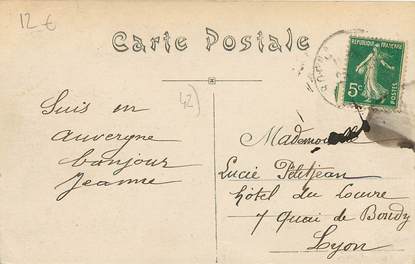 12 €
Carte Postale
REPUBLIQUE FRANÇAISE
5c
POSTES
42)
Suis en
auvergne
bonjour
Jeanne
Mademoiselle
Lucie Petitjean
hôtel du Louvre
7 Quai de Bondy
Lyon